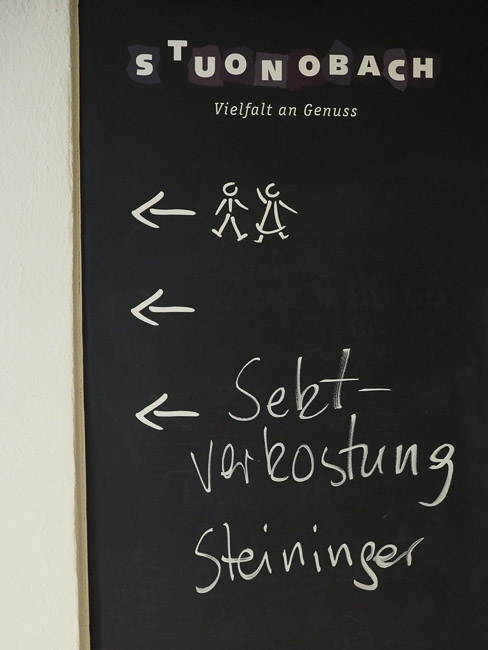 STUONOBACH
Vielfalt an Genuss
Sekt-
verkostung
Steininger